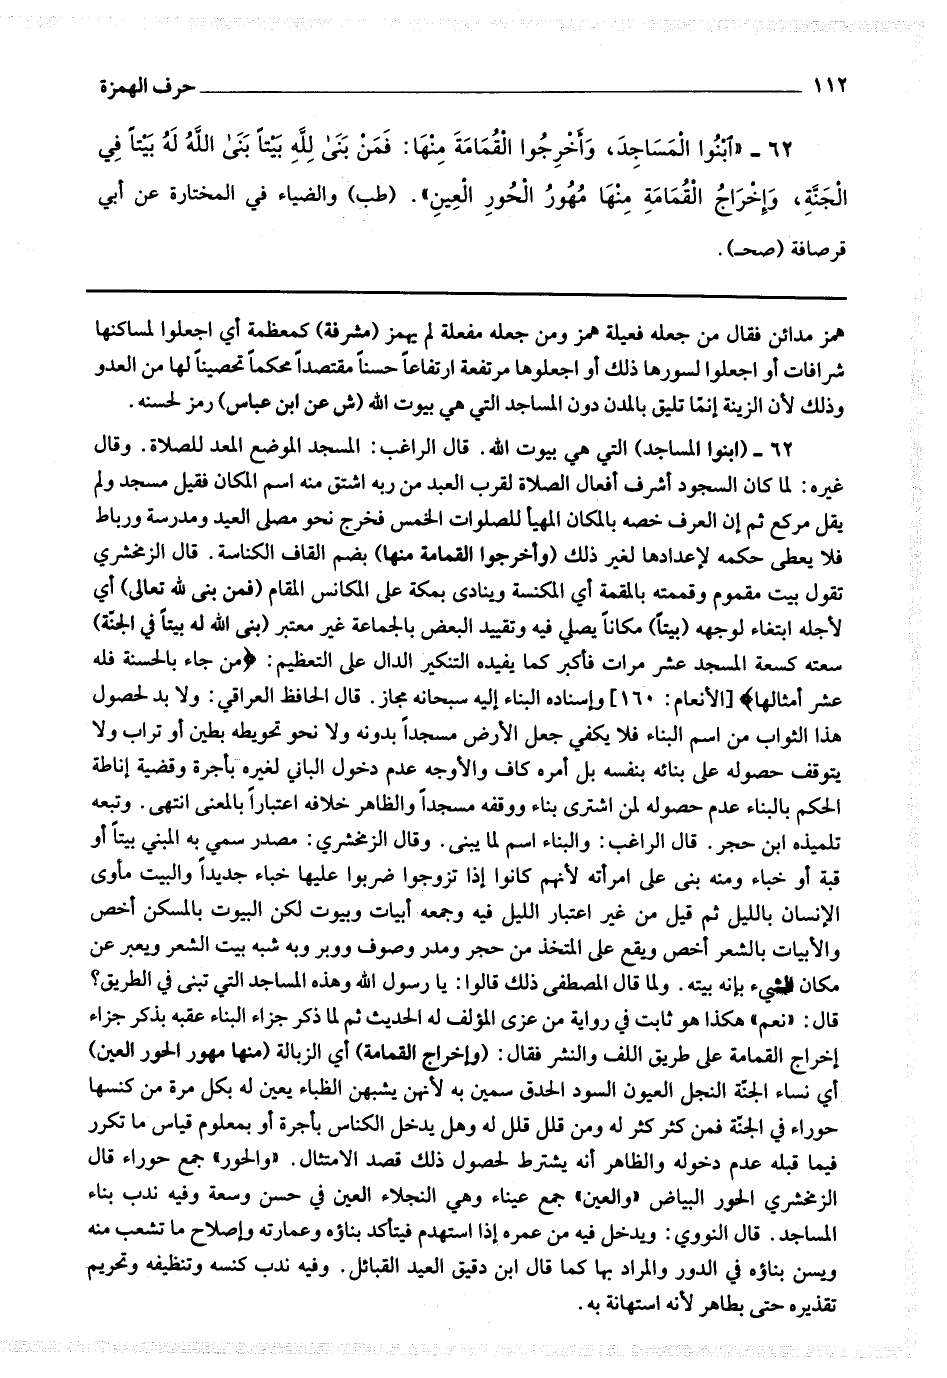 ١١٢ حرف الهمزة
٦٢ ـ «ٱبْنُوا الْمَسَاجِدَ، وَأَخْرِجُوا الْقُمَامَةَ مِنْهَا: فَمَنْ بَنَىٰ لِلَّهِ بَيْتاً بَنَىٰ اللَّهُ لَهُ بَيْتاً فِي
الْجَنَّةِ، وَإِخْرَاجُ الْقُمَامَةِ مِنْهَا مُهُورُ الْحُورِ الْعِينِ». (طب) والضياء في المختارة عن أبي
قرصافة (صحـ).
همز مدائن فقال من جعله فعيلة همز ومن جعله مفعلة لم يهمز (مشرفة) كمعظمة أي اجعلوا لمساكنها
شرافات أو اجعلوا لسورها ذلك أو اجعلوها مرتفعة ارتفاعاً حسناً مقتصداً محكماً تحصيناً لها من العدو
وذلك لأن الزينة إنمّا تليق بالمدن دون المساجد التي هي بيوت الله (ش عن ابن عباس) رمز لحسنه.
٦٢ ـ (ابنوا المساجد) التي هي بيوت الله. قال الراغب: المسجد الموضع المعد للصلاة. وقال
غيره: لما كان السجود أشرف أفعال الصلاة لقرب العبد من ربه اشتق منه اسم المكان فقيل مسجد ولم
يقل مركع ثم إن العرف خصه بالمكان المهيأ للصلوات الخمس فخرج نحو مصلى العيد ومدرسة ورباط
فلا يعطى حكمه لإعدادها لغير ذلك (وأخرجوا القمامة منها) بضم القاف الكناسة. قال الزمخشري
تقول بيت مقموم وقممته بالمقمة أي المكنسة وينادى بمكة على المكانس المقام (فمن بنى لله تعالى) أي
لأجله ابتغاء لوجهه (بيتاً) مكاناً يصلي فيه وتقييد البعض بالجماعة غير معتبر (بنى الله له بيتاً في الجنّة)
سعته كسعة المسجد عشر مرات فأكبر كما يفيده التنكير الدال على التعظيم: ﴿من جاء بالحسنة فله
عشر أمثالها﴾ [الأنعام: ١٦٠] وإسناده البناء إليه سبحانه مجاز. قال الحافظ العراقي: ولا بد لحصول
هذا الثواب من اسم البناء فلا يكفي جعل الأرض مسجداً بدونه ولا نحو تحويطه بطين أو تراب ولا
يتوقف حصوله على بنائه بنفسه بل أمره كاف والأوجه عدم دخول الباني لغيره بأجرة وقضية إناطة
الحكم بالبناء عدم حصوله لمن اشترى بناء ووقفه مسجداً والظاهر خلافه اعتباراً بالمعنى انتهى. وتبعه
تلميذه ابن حجر. قال الراغب: والبناء اسم لما يبنى. وقال الزمخشري: مصدر سمي به المبني بيتاً أو
قبة أو خباء ومنه بنى على امرأته لأنهم كانوا إذا تزوجوا ضربوا عليها خباء جديداً والبيت مأوى
الإنسان بالليل ثم قيل من غير اعتبار الليل فيه وجمعه أبيات وبيوت لكن البيوت بالمسكن أخص
والأبيات بالشعر أخص ويقع على المتخذ من حجر ومدر وصوف ووبر وبه شبه بيت الشعر ويعبر عن
مكان الشيء بإنه بيته. ولما قال المصطفى ذلك قالوا: يا رسول الله وهذه المساجد التي تبنى في الطريق؟
قال: «نعم» هكذا هو ثابت في رواية من عزى المؤلف له الحديث ثم لما ذكر جزاء البناء عقبه بذكر جزاء
إخراج القمامة على طريق اللف والنشر فقال: (وإخراج القمامة) أي الزبالة (منها مهور الحور العين)
أي نساء الجنّة النجل العيون السود الحدق سمين به لأنهن يشبهن الظباء يعين له بكل مرة من كنسها
حوراء في الجنّة فمن كثر كثر له ومن قلل قلل له وهل يدخل الكناس بأجرة أو بمعلوم قياس ما تكرر
فيما قبله عدم دخوله والظاهر أنه يشترط لحصول ذلك قصد الامتثال. «والحور» جمع حوراء قال
الزمخشري الحور البياض «والعين» جمع عيناء وهي النجلاء العين في حسن وسعة وفيه ندب بناء
المساجد. قال النووي: ويدخل فيه من عمره إذا استهدم فيتأكد بناؤه وعمارته وإصلاح ما تشعب منه
ويسن بناؤه في الدور والمراد بها كما قال ابن دقيق العيد القبائل. وفيه ندب كنسه وتنظيفه وتحريم
تقذيره حتى بطاهر لأنه استهانة به.